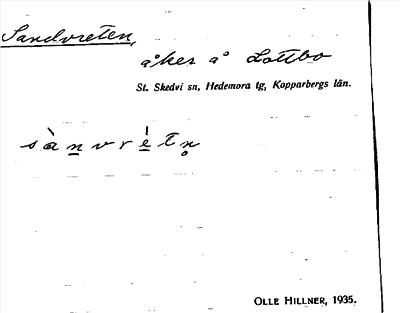 Sandvreten,
åker å Lottbo
St. Skedvi sn, Hedemora tg, Kopparbergs län.
sànvrétn̥
OLLE HILLNER, 1935.